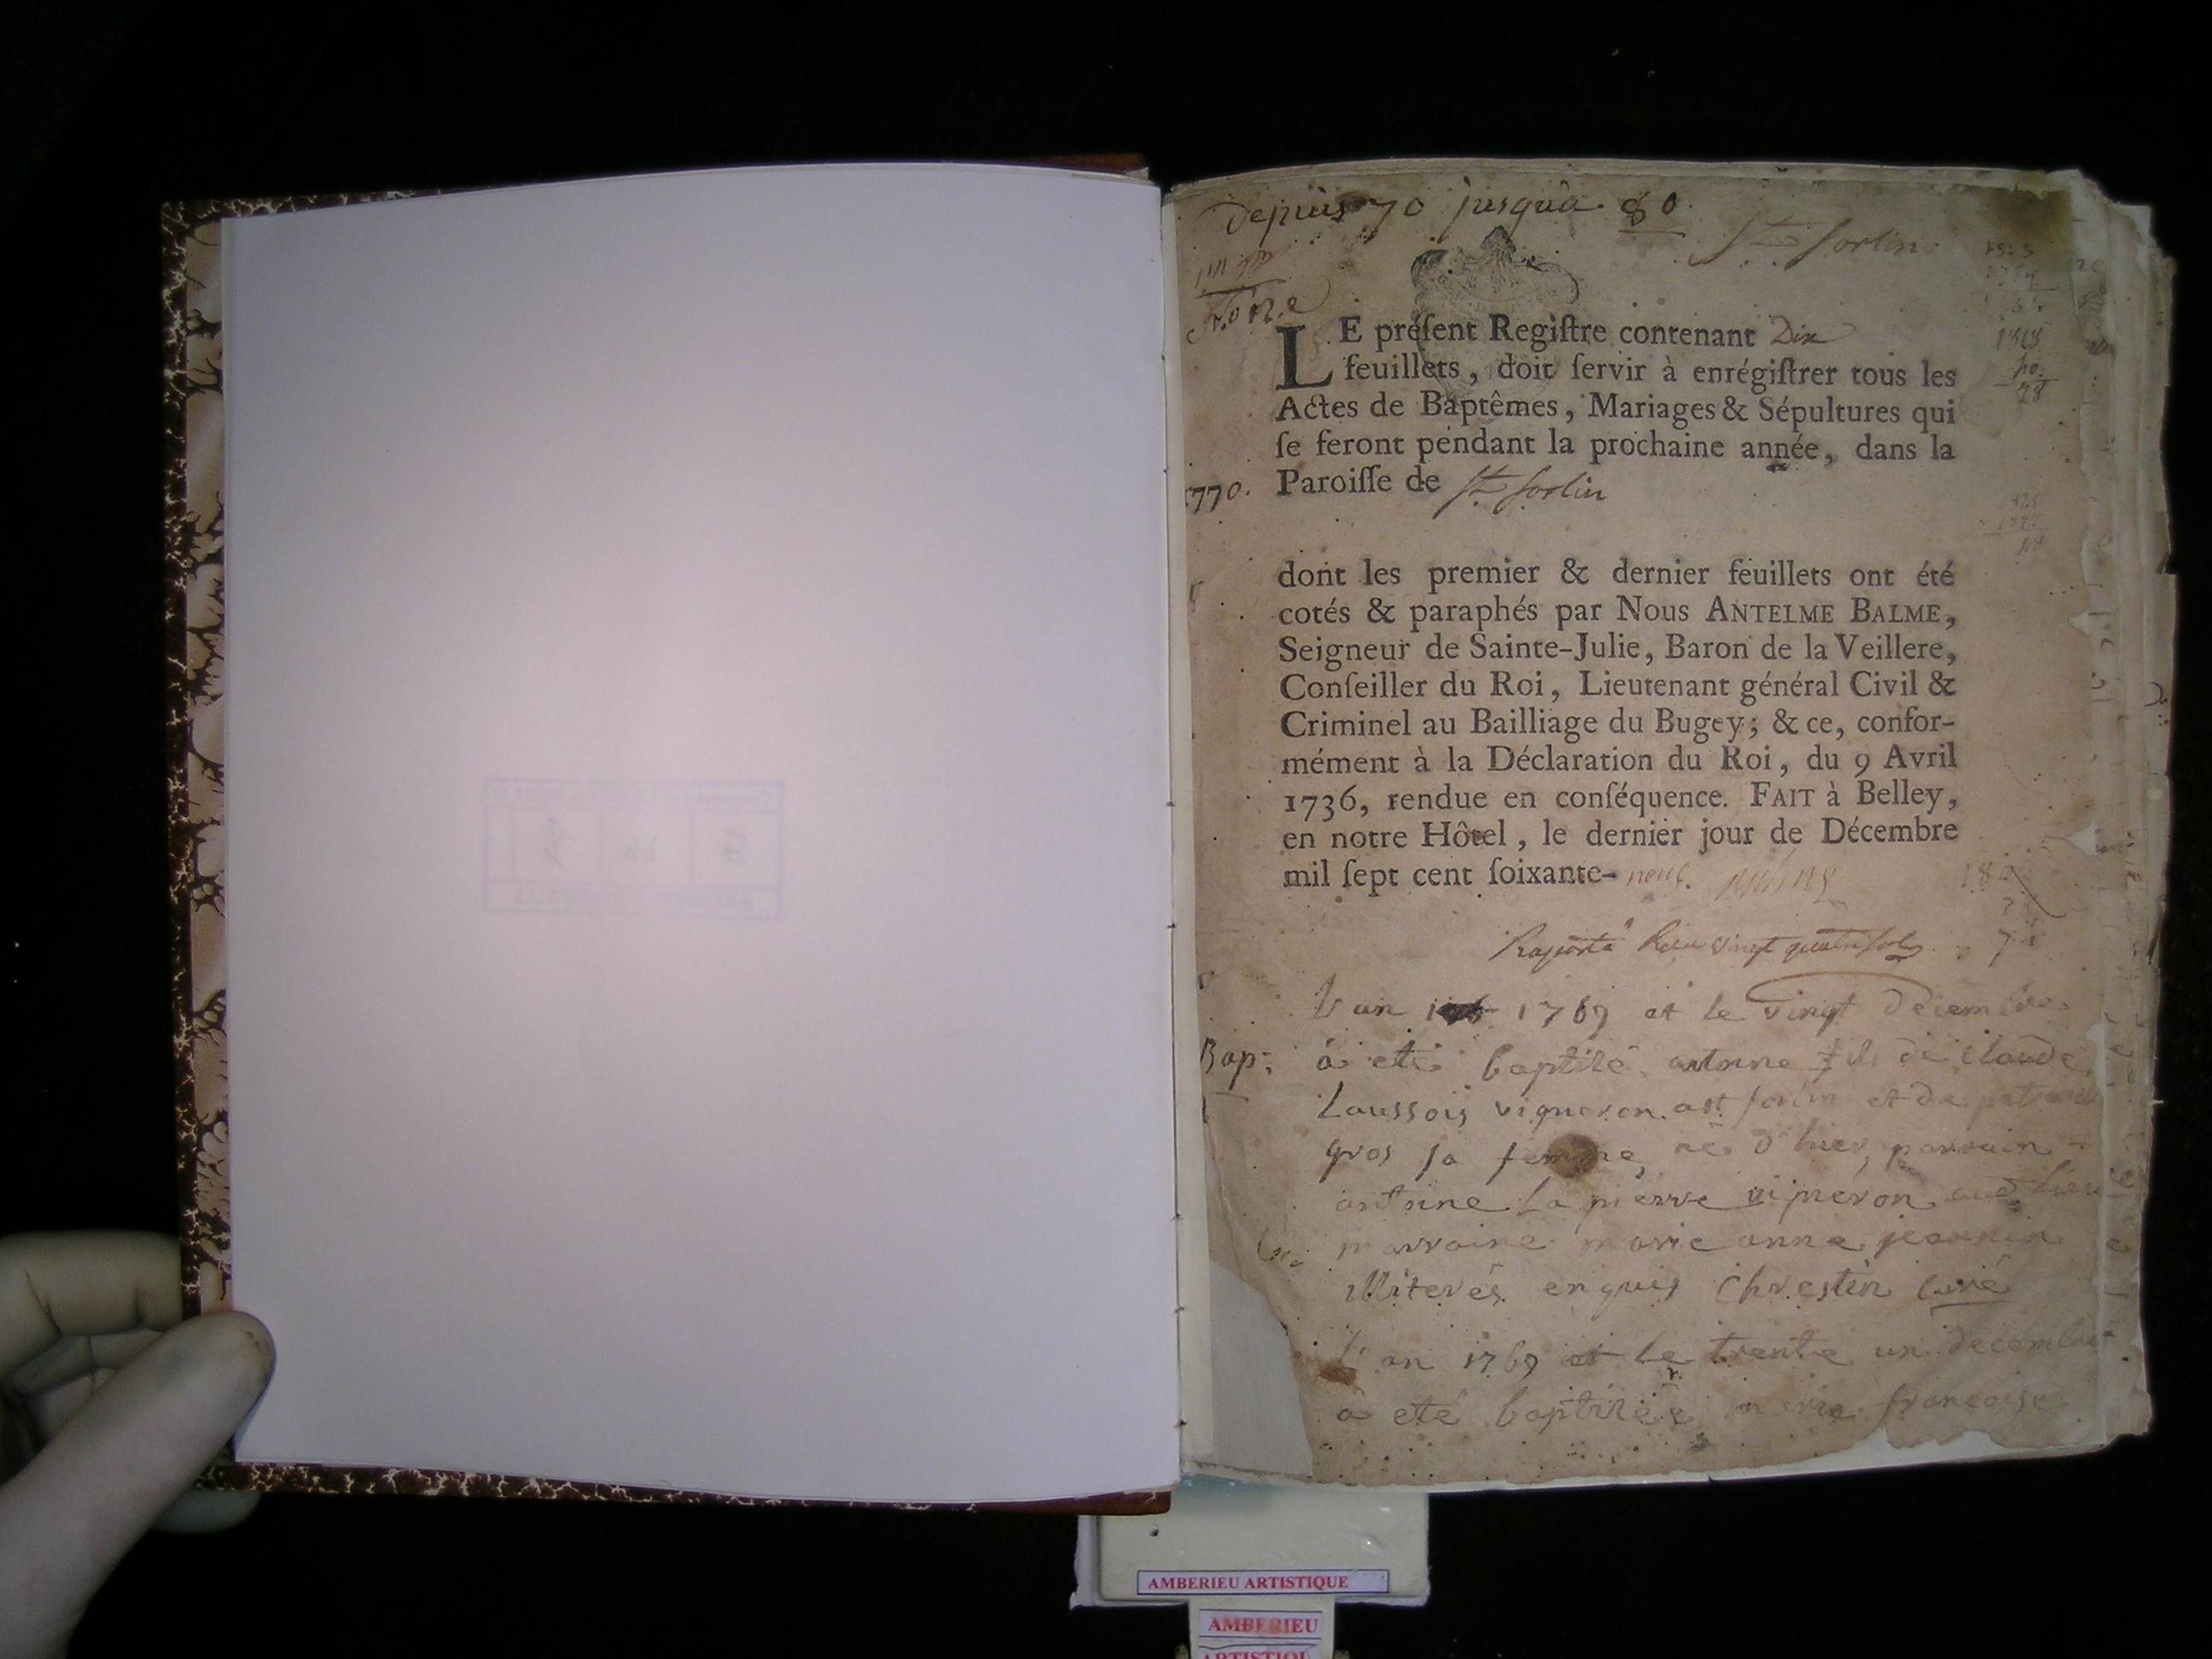 depuis 70 jusqua 80
St. Sorlin
LE préſent Regiſtre contenant Dix
feuillets, doit ſervir à enrégiſtrer tous les
Actes de Baptêmes, Mariages & Sépultures qui
ſe feront pendant la prochaine année, dans la
1770.
Paroiſſe de St. Sorlin
dont les premier & dernier feuillets ont été
cotés & paraphés par Nous ANTELME BALME,
Seigneur de Sainte-Julie, Baron de la Veillere,
Conſeiller du Roi, Lieutenant général Civil &
Criminel au Bailliage du Bugey; & ce, confor-
mément à la Déclaration du Roi, du 9 Avril
1736, rendue en conſéquence. FAIT à Belley,
en notre Hôtel, le dernier jour de Décembre
mil ſept cent ſoixante-neuf.
vingt quatre sols
L'an 1769 et le vingt decembre
Bap:
à eté baptisé antoine fils de claude
Laussois vigneron a st sorlin et de
gros sa femme, né d'hier, parrain
antoine La pierre vigneron
marraine marie anne jeannin
illiterés enquis Chrestin curé
L'an 1769 et le trente un decembre
à eté baptisée marie francoise
AMBERIEU ARTISTIQUE
AMBERIEU